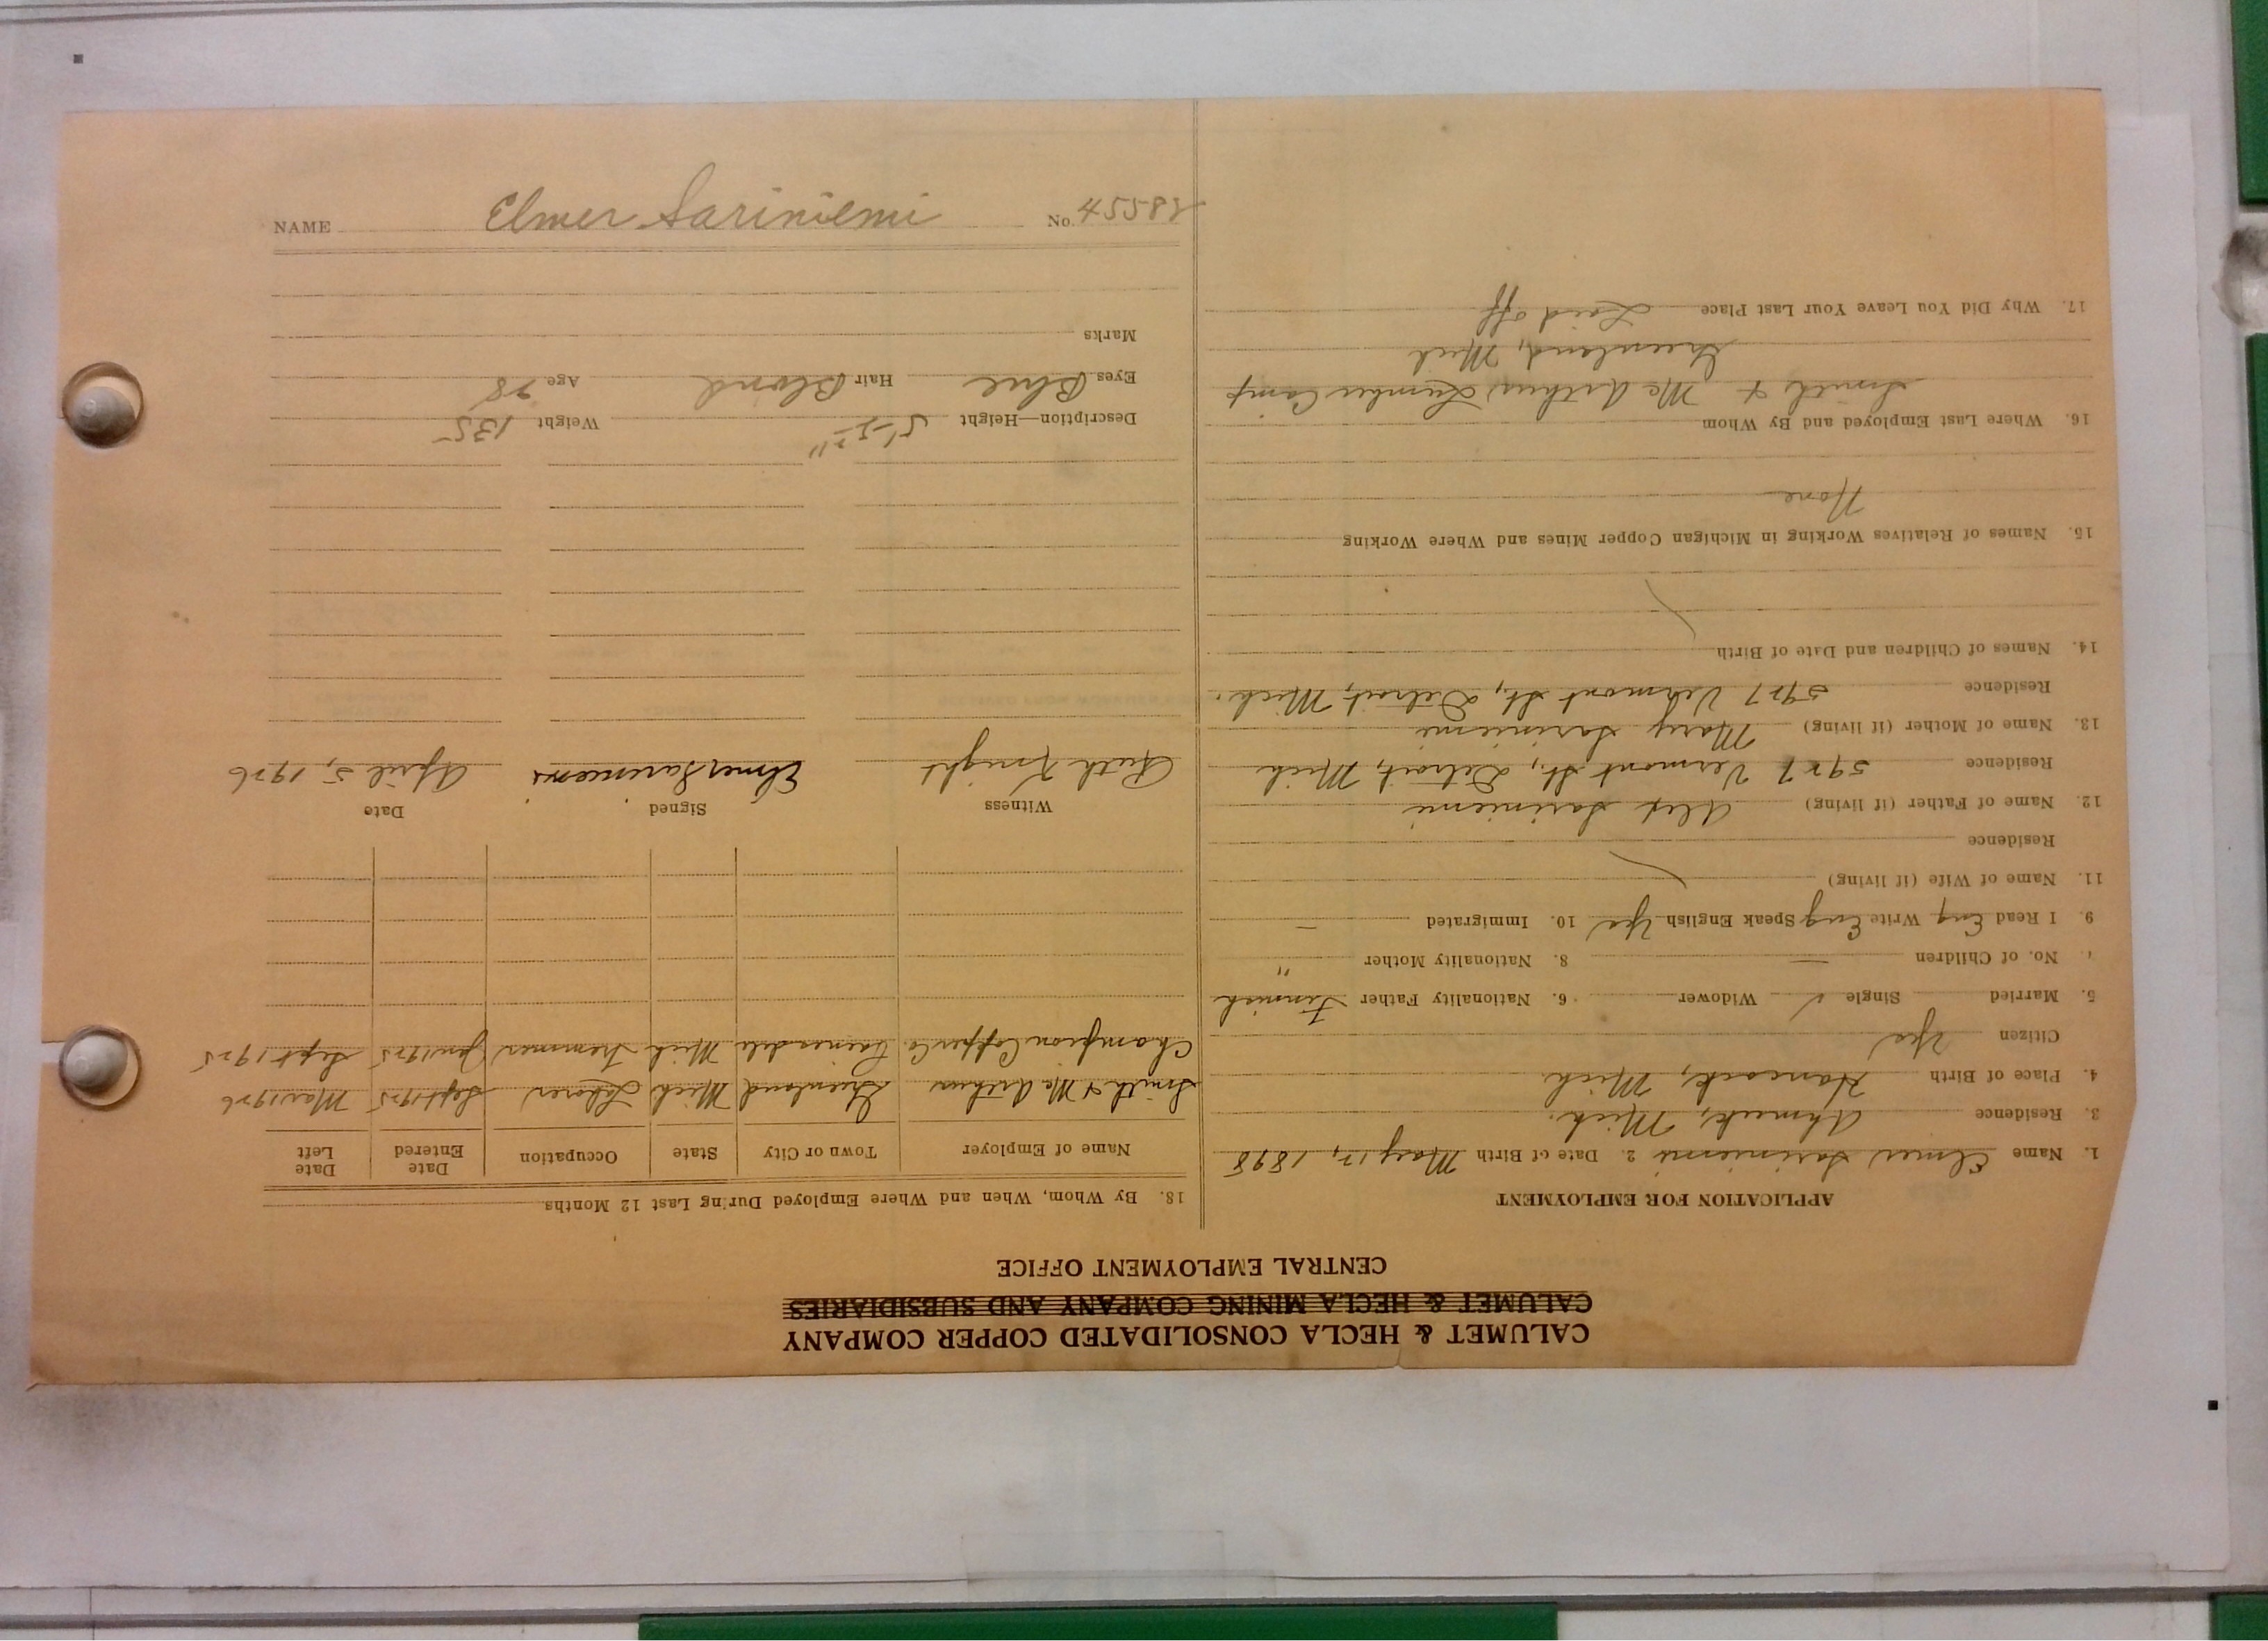 CALUMET & HECLA CONSOLIDATED COPPER COMPANY
CALUMET & HECLA MINING COMPANY AND SUBSIDIARIES
CENTRAL EMPLOYMENT OFFICE
APPLICATION FOR EMPLOYMENT
1. Name Elmer Sariniemi 2. Date of Birth May 12, 1898
3. Residence Ahmeek, Mich.
4. Place of Birth Hancock, Mich.
Citizen Yes
5. Married Single ✓ Widower 6. Nationality Father Finnish
7. No. of Children — 8. Nationality Mother "
9. I Read Eng Write Eng Speak English Yes 10. Immigrated —
11. Name of Wife (if living)
Residence
12. Name of Father (if living) Alex Sariniemi
Residence 5927 Vermont St., Detroit, Mich
13. Name of Mother (if living) Mary Sariniemi
Residence 5927 Vermont St., Detroit, Mich.
14. Names of Children and Date of Birth
15. Names of Relatives Working in Michigan Copper Mines and Where Working
None
16. Where Last Employed and By Whom
Smith & McArthur Lumber Camp
Greenland, Mich
17. Why Did You Leave Your Last Place Laid off
18. By Whom, When and Where Employed During Last 12 Months
Name of Employer Town or City State Occupation Date Entered Date Left
Smith & McArthur Greenland Mich Laborer Sept 1925 Mar 1926
Champion Copper Co Painesdale Mich Trammer Jan 1925 Sept 1925
Witness Signed Date
Ruth Knight Elmer Sariniemi April 5, 1926
Description—Height 5'-5½" Weight 135
Eyes Blue Hair Blond Age 28
Marks
NAME Elmer Sariniemi No. 45582